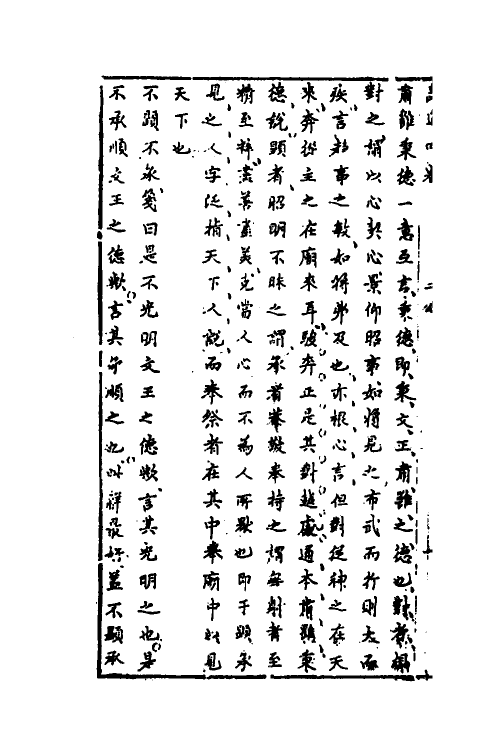 肅雝秉德一意互言秉德即秉文王肅雝之德也對者
對之謂以心對心景仰昭事如將見之布武而行則太
疾言趨事之敏如將弗及也亦根心言但對從神之在天
來奔從主之在廟來耳駿奔正是其對越處通本肅雝秉
德說顯者昭明不昧之謂承者奉持之謂無射者至
精至粹盡善盡美克當人心而不為人所厭也即于顯承
見之人字泛指天下人說而奉祭者在其中奉廟中以見
天下也
不顯不承箋曰是不光明文王之德歟言其光明之也是
不承順文王之德歟言其承順之也此祥最好蓋不顯承